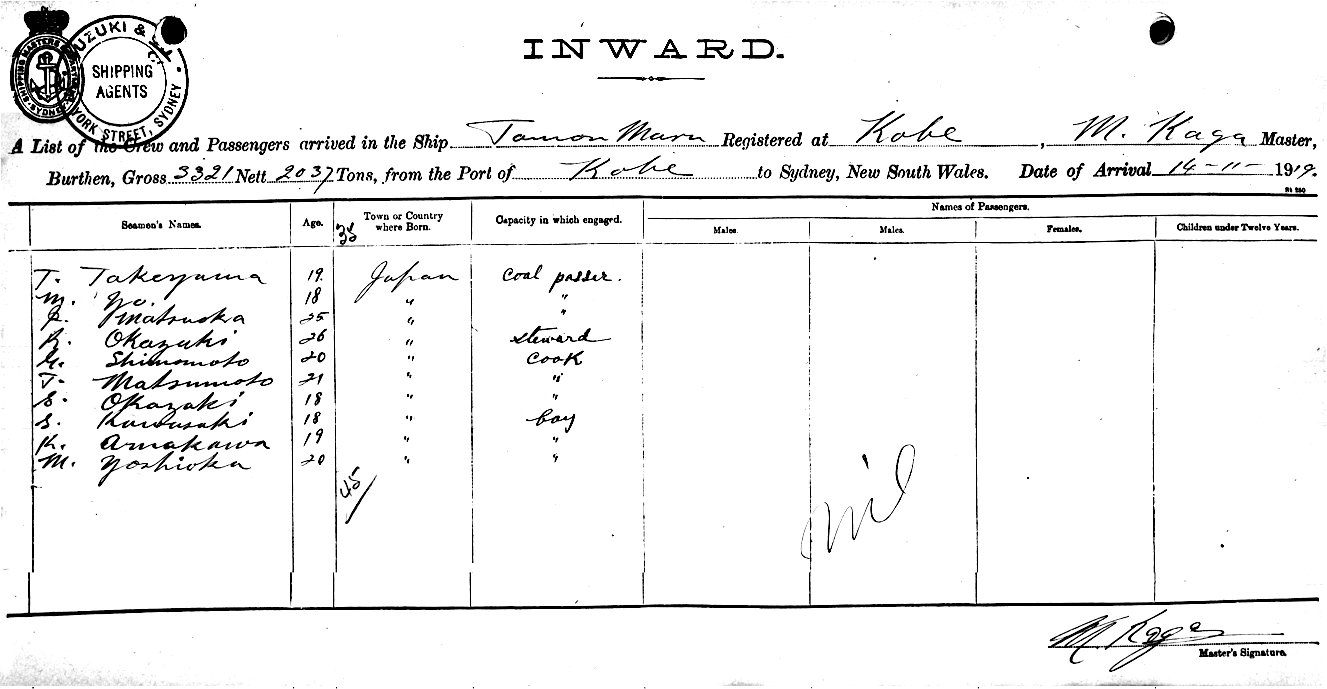 INWARD.
SUZUKI & Co.
SHIPPING AGENTS
YORK STREET, SYDNEY
A List of the Crew and Passengers arrived in the Ship Tamon Maru Registered at Kobe, M. Kaga Master,
Burthen, Gross 3321 Nett 2037 Tons, from the Port of Kobe to Sydney, New South Wales. Date of Arrival 14-11-1919.
Names of Passengers.
Seamen's Names. Age. 35 Town or Country where Born. Capacity in which engaged. Males. Males. Females. Children under Twelve Years.
T. Takeyama 19 Japan coal passer.
M. Yo. 18 " "
Matsuoka 25 " "
K. Okazaki 26 " steward
Shimomoto 20 " cook
T. Matsumoto 21 " "
S. Okazaki 18 " "
S. Kawasaki 18 " boy
K. Amakawa 19 " "
M. Yoshioka 20 " "
45/
nil
M. Kaga
Master's Signature.